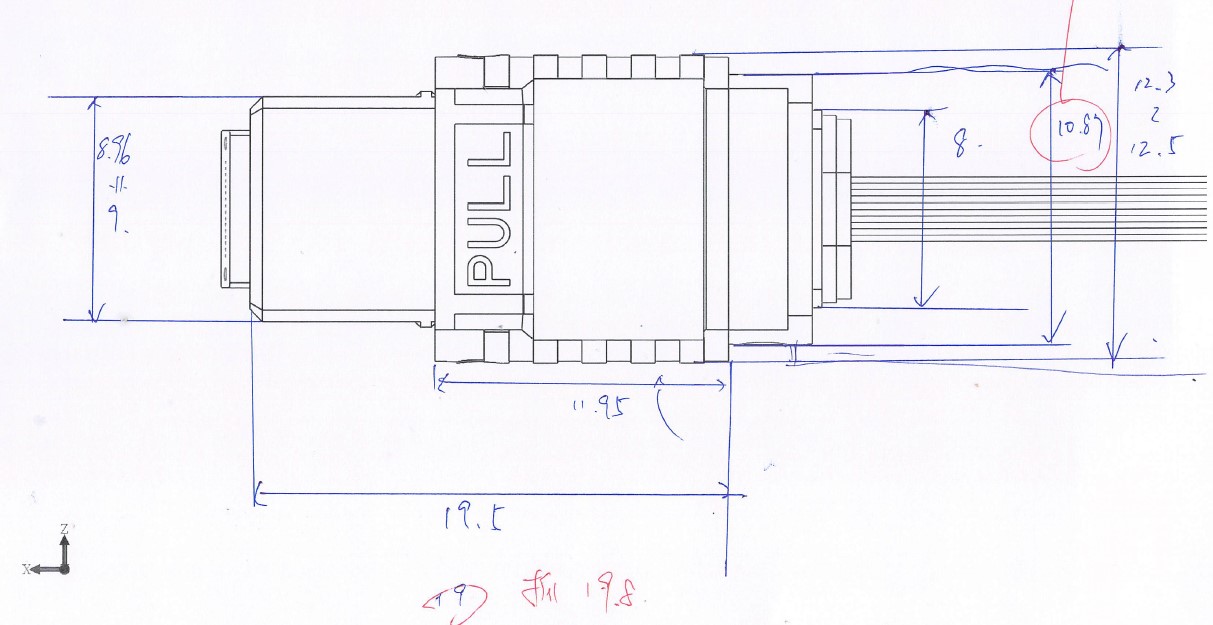 8.96
9.
PULL
8.
10.87
12.3
12.5
11.95
19.5
Z
X
19
19.8